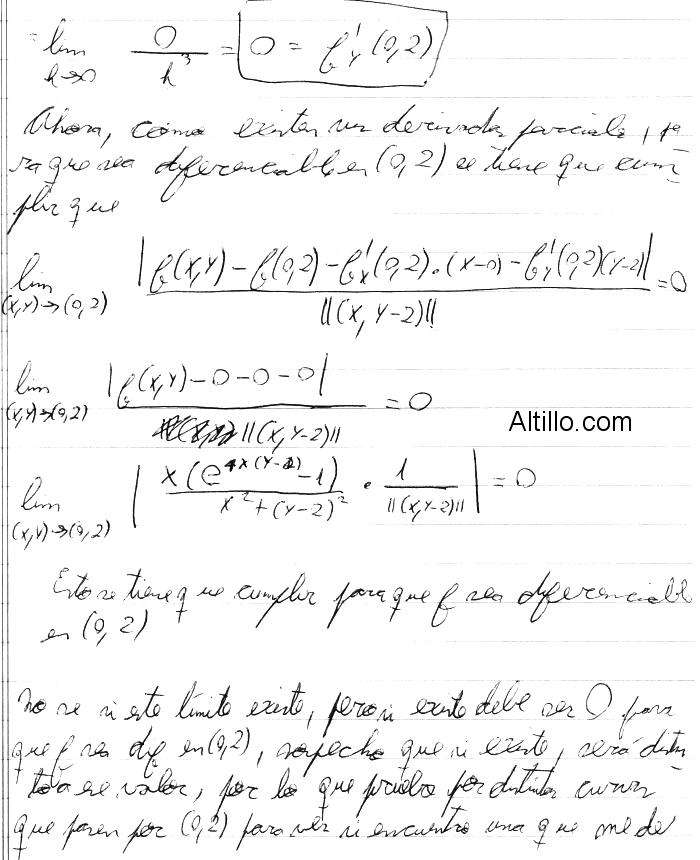 = lim 0 / h³ = 0 = f'y (0,2)
h→0
Ahora, como existen sus derivadas parciales, pa-
ra que sea diferenciable en (0,2) se tiene que cum-
plir que
lim |f(x,y) - f(0,2) - f'x(0,2).(x-0) - f'y(0,2)(y-2)| / ||(x, y-2)|| = 0
(x,y)→(0,2)
lim |f(x,y) - 0 - 0 - 0| / ||(x, y-2)|| = 0
(x,y)→(0,2)
Altillo.com
lim | x(e^4x(y-2) - 1) / x² + (y-2)² . 1 / ||(x,y-2)|| | = 0
(x,y)→(0,2)
Esto se tiene que cumplir para que f sea diferenciable
en (0,2)
No se si este límite existe, pero si existe debe ser 0 para
que f sea dif en (0,2), sospecho que si existe, será distin-
to a ese valor, por lo que pruebo por distintas curvas
que pasen por (0,2) para ver si encuentro una que me de